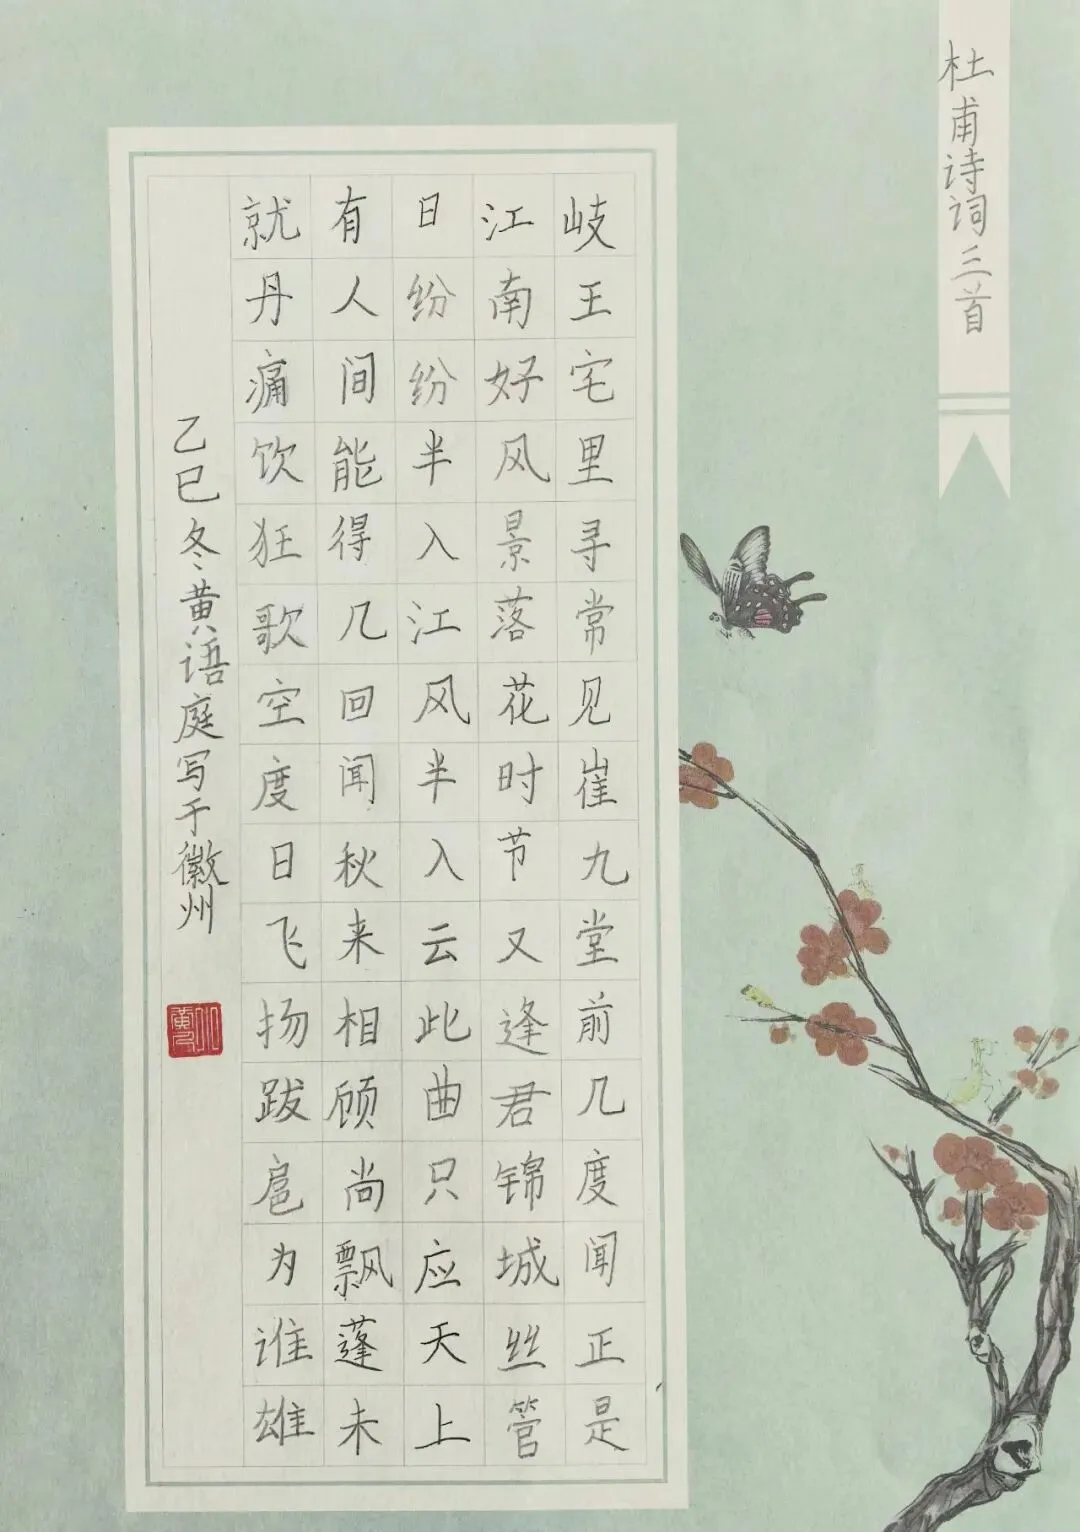 杜甫诗词三首
岐王宅里寻常见崔九堂前几度闻正是
江南好风景落花时节又逢君锦城丝管
日纷纷半入江风半入云此曲只应天上
有人间能得几回闻秋来相顾尚飘蓬未
就丹痛饮狂歌空度日飞扬跋扈为谁雄
乙巳冬黄语庭写于徽州